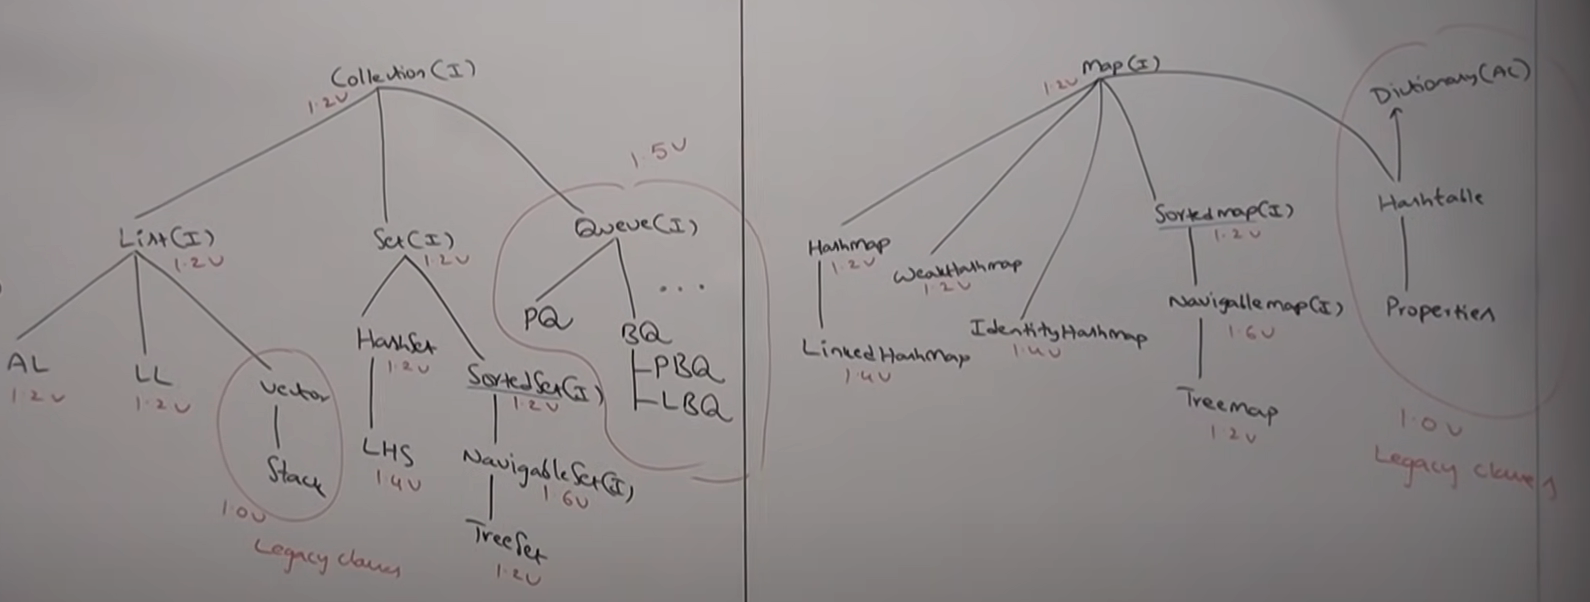 Collection(I)
1.2V
List(I)
1.2V
AL
1.2V
LL
1.2V
Vector
Stack
1.0V
Legacy classes
Set(I)
1.2V
HashSet
1.2V
LHS
1.4V
SortedSet(I)
1.2V
NavigableSet(I)
1.6V
TreeSet
1.2V
1.5V
Queue(I)
PQ
BQ
...
PBQ
LBQ
Map(I)
1.2V
Hashmap
1.2V
LinkedHashMap
1.4V
WeakHashmap
1.2V
IdentityHashmap
1.4V
Sortedmap(I)
1.2V
Navigablemap(I)
1.6V
Treemap
1.2V
Dictionary(AC)
Hashtable
Properties
1.0V
Legacy classes